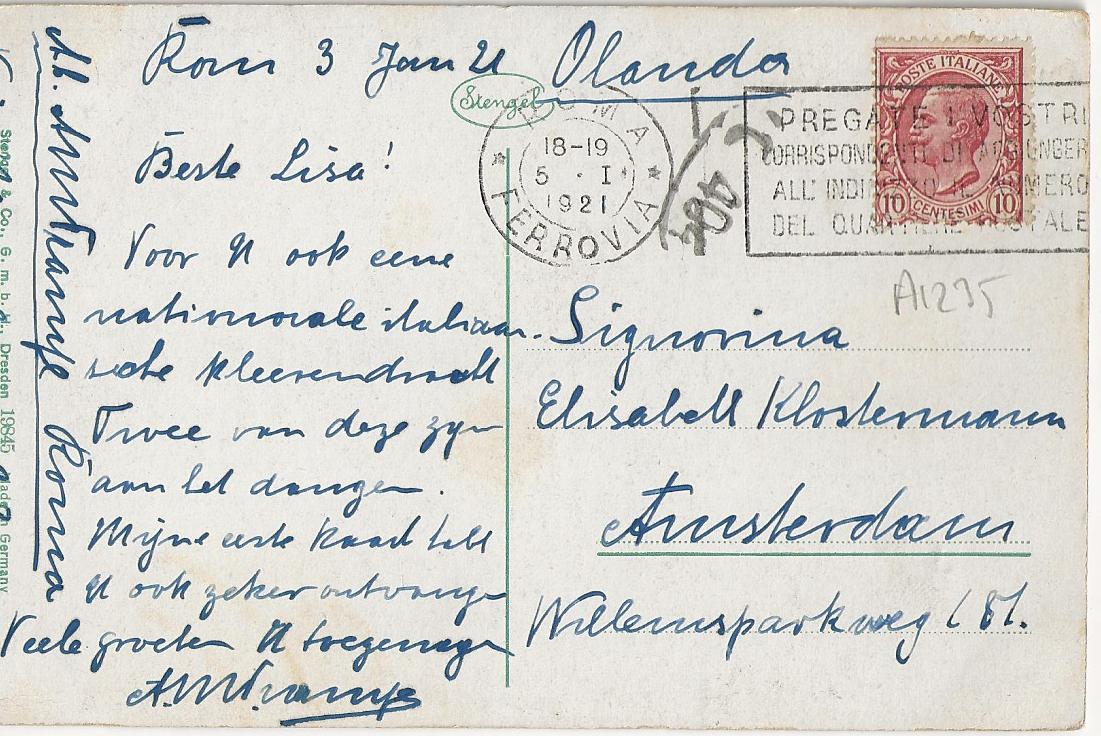 Rom 3 Jan 21
Beste Lisa!
Voor U ook eene
nationaale italiaan-
sche kleerendracht
Twee van deze zyn
aan het dansen.
Mijne eerste kaart hebt
U ook zeker ontvange
Veele groeten U toegenege
Roma
Olanda
Signorina
Elisabeth Klostermann
Amsterdam
Willemsparkweg 181.
Stengel
ROMA
FERROVIA
18-19
5 · I
1921
PREGATE I VOSTRI
CORRISPONDENTI DI AGGIUNGER
ALL'INDIRIZZO IL NUMERO
DEL QUARTIERE POSTALE
POSTE ITALIANE
10 CENTESIMI 10
A1235
Stengel & Co., G. m. b. H., Dresden 19845 Made in Germany